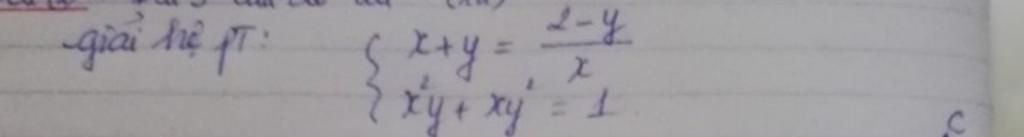 giải hệ pT: { x+y = (2-y)/x
x²y + xy² = 1